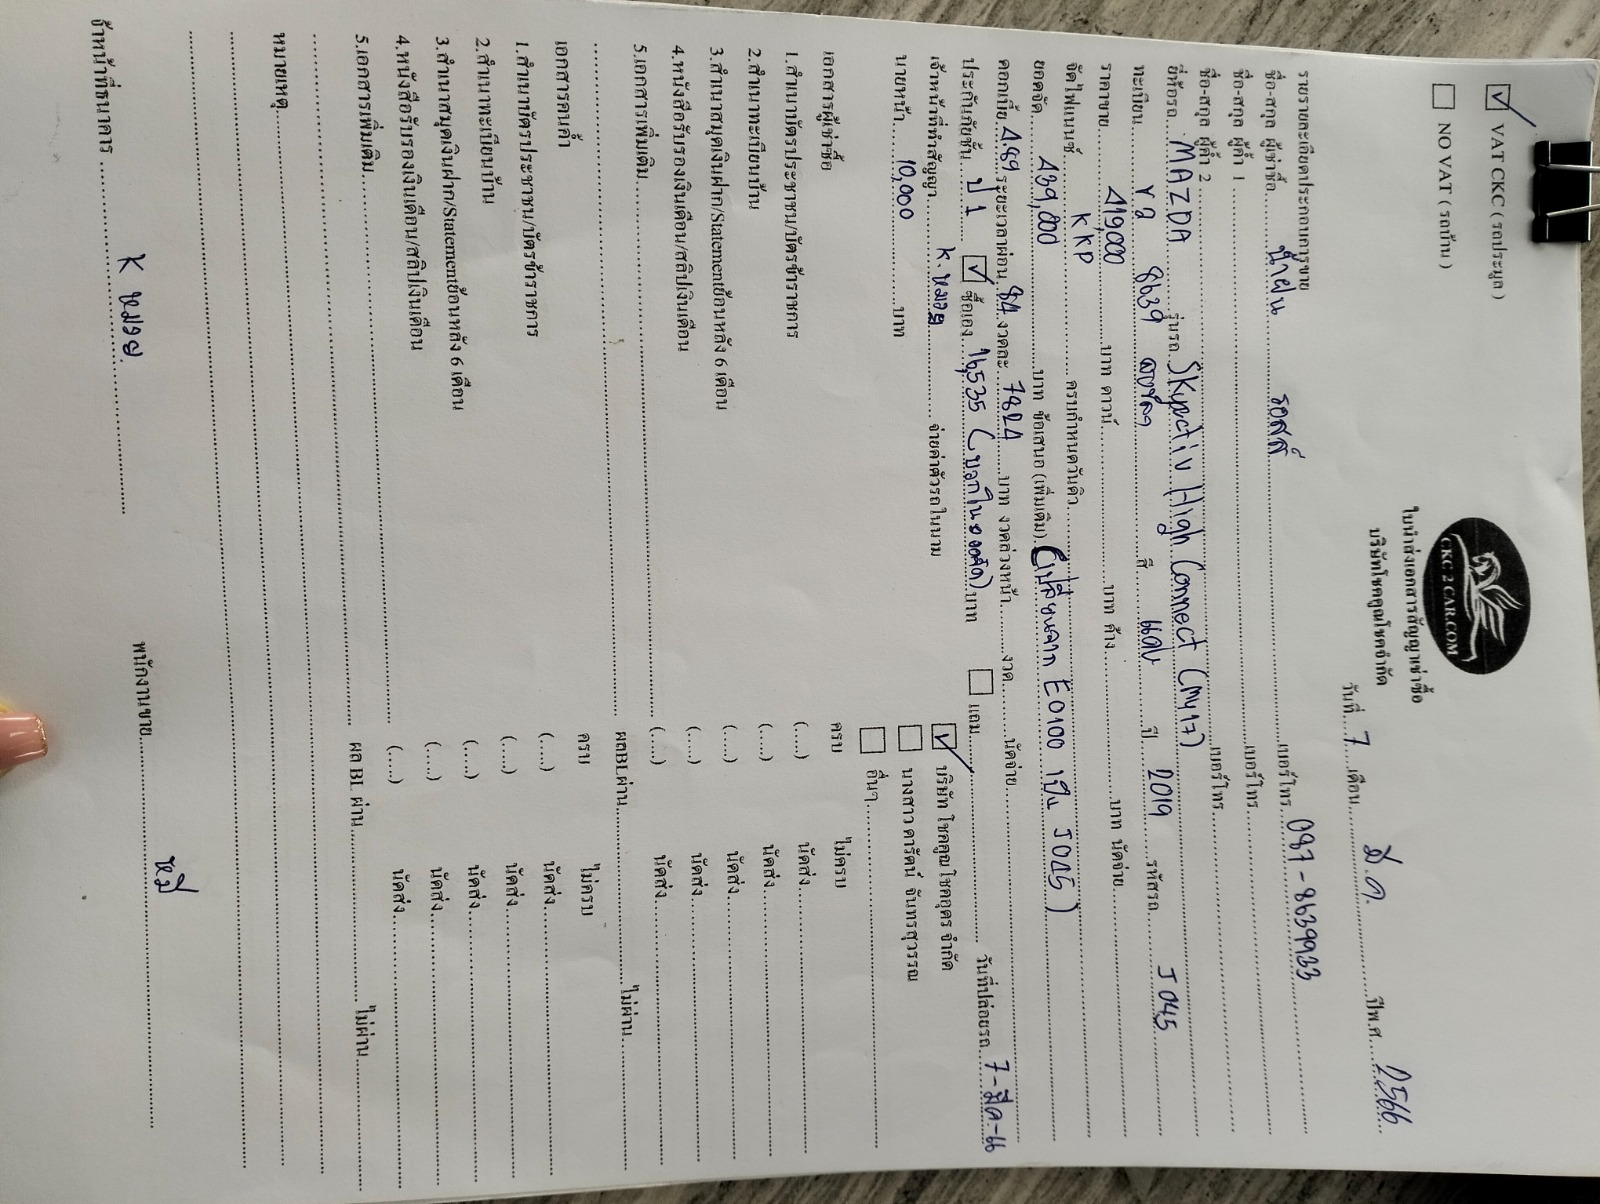 ☑ VAT CKC ( รถประมูล )
☐ NO VAT ( รถบ้าน )
CKC 2 CAR.COM
ใบนำส่งเอกสารสัญญาเช่าซื้อ
บริษัทโชคคูณโชคจำกัด
วันที่ 7 เดือน มี.ค. ปีพ.ศ. 2566
รายรายละเอียดประกอบการขาย
ชื่อ-สกุล ผู้เช่าซื้อ น้ำฝน รอสส์ เบอร์โทร 087-8639933
ชื่อ-สกุล ผู้ค้ำ 1 เบอร์โทร
ชื่อ-สกุล ผู้ค้ำ 2 เบอร์โทร
ยี่ห้อรถ MAZDA รุ่นรถ Skyactiv High Connect (MY17)
ทะเบียน 8639 สงขลา สี แดง ปี 2019 รหัสรถ J045
ราคาขาย 419,000 บาท ดาวน์ บาท ค้าง บาท นัดจ่าย
จัดไฟแนนซ์ KKP ครบกำหนดวันคิว
ยอดจัด 439,000 บาท ข้อเสนอ (เพิ่มเติม) (เปลี่ยนจาก E0100 เป็น J045)
ดอกเบี้ย 4.89 ระยะเวลาผ่อน 84 งวดละ 7824 บาท งวดล่วงหน้า งวด นัดจ่าย
ประกันภัยชั้น ป 1 ☑ ซื้อเอง 16,535 (บวกในยอดจัด) บาท ☐ แถม วันที่ปล่อยรถ 7-มีค-
เจ้าหน้าที่ทำสัญญา K. หมวย จ่ายค่าตัวรถในนาม ☑ บริษัท โชคคูณโชคอุดร จำกัด
นายหน้า 10,000 บาท ☐ นางสาว ดารัตน์ จันทรสุวรรณ
☐ อื่นๆ
เอกสารผู้เช่าซื้อ ครบ ไม่ครบ
1.สำเนาบัตรประชาชน/บัตรข้าราชการ (....) นัดส่ง
2.สำเนาทะเบียนบ้าน (....) นัดส่ง
3.สำเนาสมุดเงินฝาก/Statementย้อนหลัง 6 เดือน (....) นัดส่ง
4.หนังสือรับรองเงินเดือน/สลิปเงินเดือน (....) นัดส่ง
5.เอกสารเพิ่มเติม (....) นัดส่ง
ผลBLผ่าน ไม่ผ่าน
เอกสารคนค้ำ ครบ ไม่ครบ
1.สำเนาบัตรประชาชน/บัตรข้าราชการ (....) นัดส่ง
2.สำเนาทะเบียนบ้าน (....) นัดส่ง
3.สำเนาสมุดเงินฝาก/Statementย้อนหลัง 6 เดือน (....) นัดส่ง
4.หนังสือรับรองเงินเดือน/สลิปเงินเดือน (....) นัดส่ง
5.เอกสารเพิ่มเติม (....) นัดส่ง
ผล BL ผ่าน ไม่ผ่าน
หมายเหตุ
จ้าหน้าที่ธนาคาร K หมวย. พนักงานขาย หมี